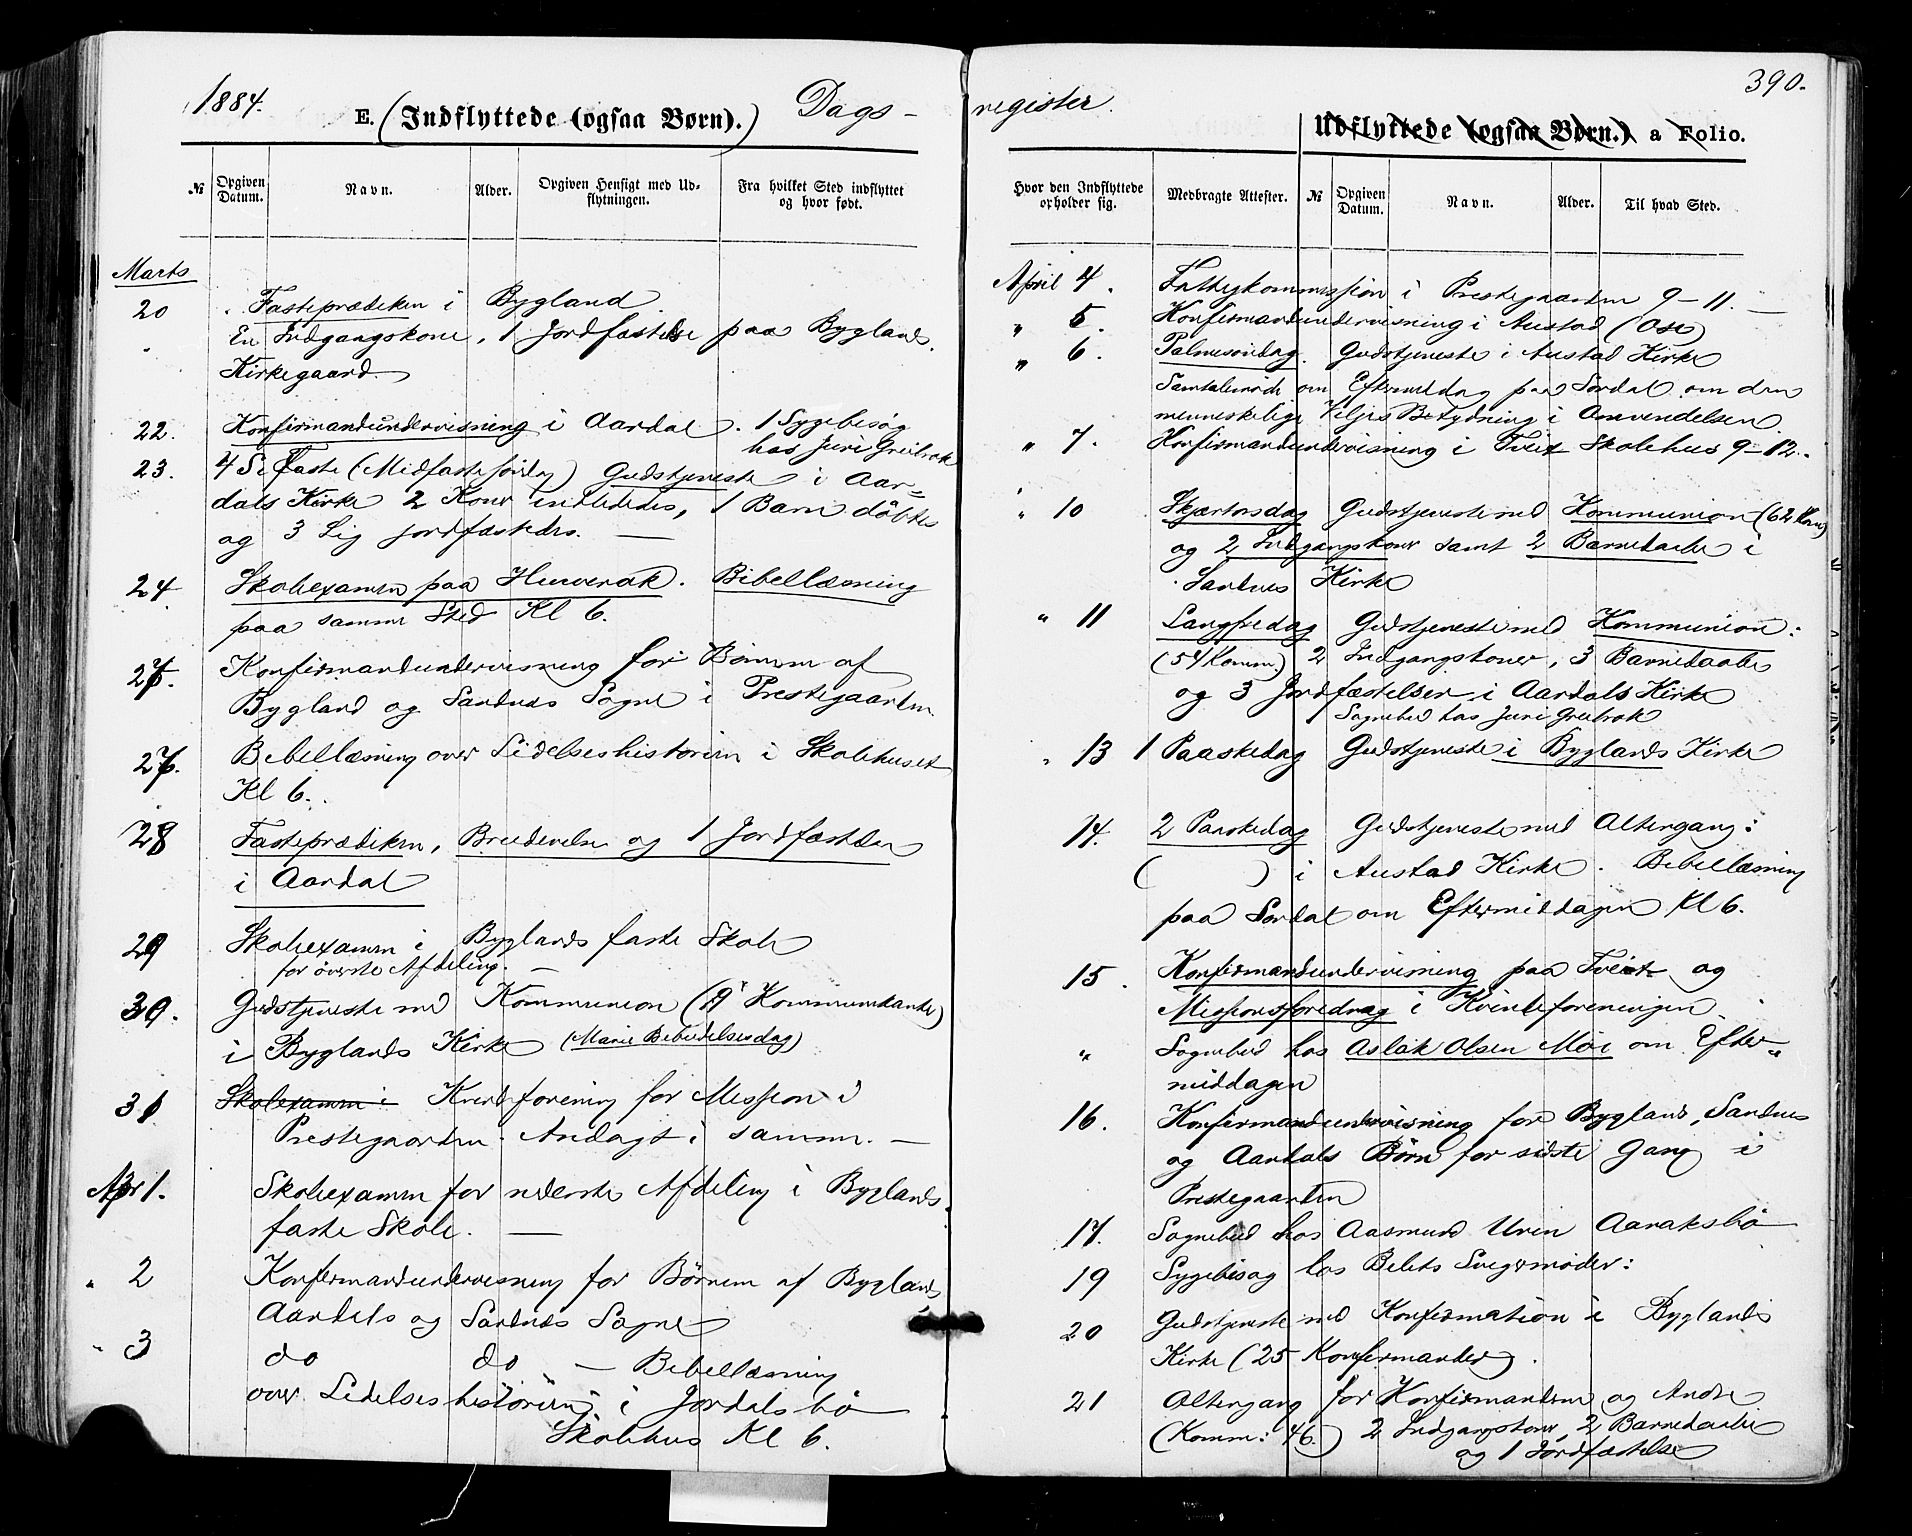 1884.
E. (Indflyttede (ogsaa Børn).) Dags-
№
Opgiven Datum.
Navn.
Alder.
Opgiven Hensigt med Udflytningen.
Fra hvilket Sted indflyttet og hvor født.
Marts
20 Fasteprædiken i Bygland.
En Indgangskone, 1 Jordfæstelse paa Byglands
Kirkegaard.
22. Konfirmandundervisning i Aardal. 1 Sygebesøg
hos Juri Greibrok
23. 4 S. i Faste (Midfastesøndag) Gudstjeneste i Aar-
dals Kirke 2 Koner indlededes, 1 Barn döbtes
og 3 Lig jordfæstedes.
24. Skoleexamen paa Hurverak. Bibellæsning
paa samme Sted Kl 6.
Konfirmandundervisning for Børnene af
Bygland og Sandnes Sogne i Prestegaarden
Bibellæsning over Lidelseshistorien i Skolehuset
Kl 6.
28 Fasteprædiken, Brudevielse og 1 Jordfæstelse
i Aardal
29 Skoleexamen i Byglands faste Skole
for överste Afdeling.
30. Gudstjeneste med Kommunion ( Kommunikanter)
i Byglands Kirke (Mariæ Bebudelsesdag)
31 Skolexamen i Kvindeforening for Mission i
Prestegaarden. Andagt i samme.
Apr 1. Skoleexamen for nederste Afdeling i Byglands
faste Skole.
" 2 Konfirmandundervisning for Børnene af Byglands
Aardals og Sandnes Sogne
" 3 do do - Bibellæsning
over Lidelseshistorien i Jordalsbö
Skolehus Kl 6.
390.
register.
Udflyttede (ogsaa Børn.) a Folio.
Hvor den Indflyttede opholder sig.
Medbragte Attester.
№
Opgiven Datum.
Navn.
Alder.
Til hvad Sted.
April 4. Fattigkommission i Prestegaarden 9-11.
" 5. Konfirmandundervisning i Austad (Ose)
" 6. Palmesöndag. Gudstjeneste i Austad Kirke
Samtalemøde om Eftermiddag paa Sordal om den
menneskelige Viljes Betydning i Omvendelsen.
" 7. Konfirmandundervisning i Tveit Skolehus 9-12.
" 10 Skjærtorsdag Gudstjeneste med Kommunion (62 Kom)
og 2 Indgangskoner samt 2 Barnedaabe i
Sandnes Kirke
" 11 Langfredag Gudstjeneste med Kommunion:
(54 Komm.) 2 Indgangskoner, 3 Barnedaabe
og 3 Jordfæstelser i Aardals Kirke
Sognebud hos Juri Greibrok
" 13 1 Paaskedag Gudstjeneste i Byglands Kirke
14. 2 Paaskedag Gudstjeneste med Altergang:
( ) i Austad Kirke. Bibellæsning
paa Sordal om Eftermiddagen Kl 6.
15. Konfirmandundervisning paa Tveit og
Missionsforedrag i Kvindeforeningen.
" Sognebud hos Aslak Olsen Moi om Efter-
middagen
16. Konfirmandundervisning for Bygland, Sandnes
og Aardals Børn for sidste Gang i
Prestegaarden
17. Sognebud hos Aasmund Uren Aaraksbö
19 Sygebesøg hos Belets Svigermoder:
20 Gudstjeneste med Konfirmation i Byglands
Kirke (25 Konfirmander).
21 Altergang for Konfirmanderne og Andre
(Komm: 46.) 2 Indgangskoner, 2 Barnedaabe
og 1 Jordfæstelse